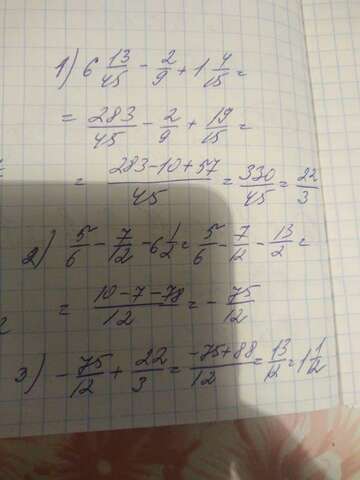 1) 6 13/45 - 2/9 + 1 4/15 =
= 283/45 - 2/9 + 19/15 =
= (283-10+57)/45 = 330/45 = 22/3
2) 5/6 - 7/12 - 6 1/2 = 5/6 - 7/12 - 13/2 =
= (10-7-78)/12 = - 75/12
3) - 75/12 + 22/3 = (-75+88)/12 = 13/12 = 1 1/12